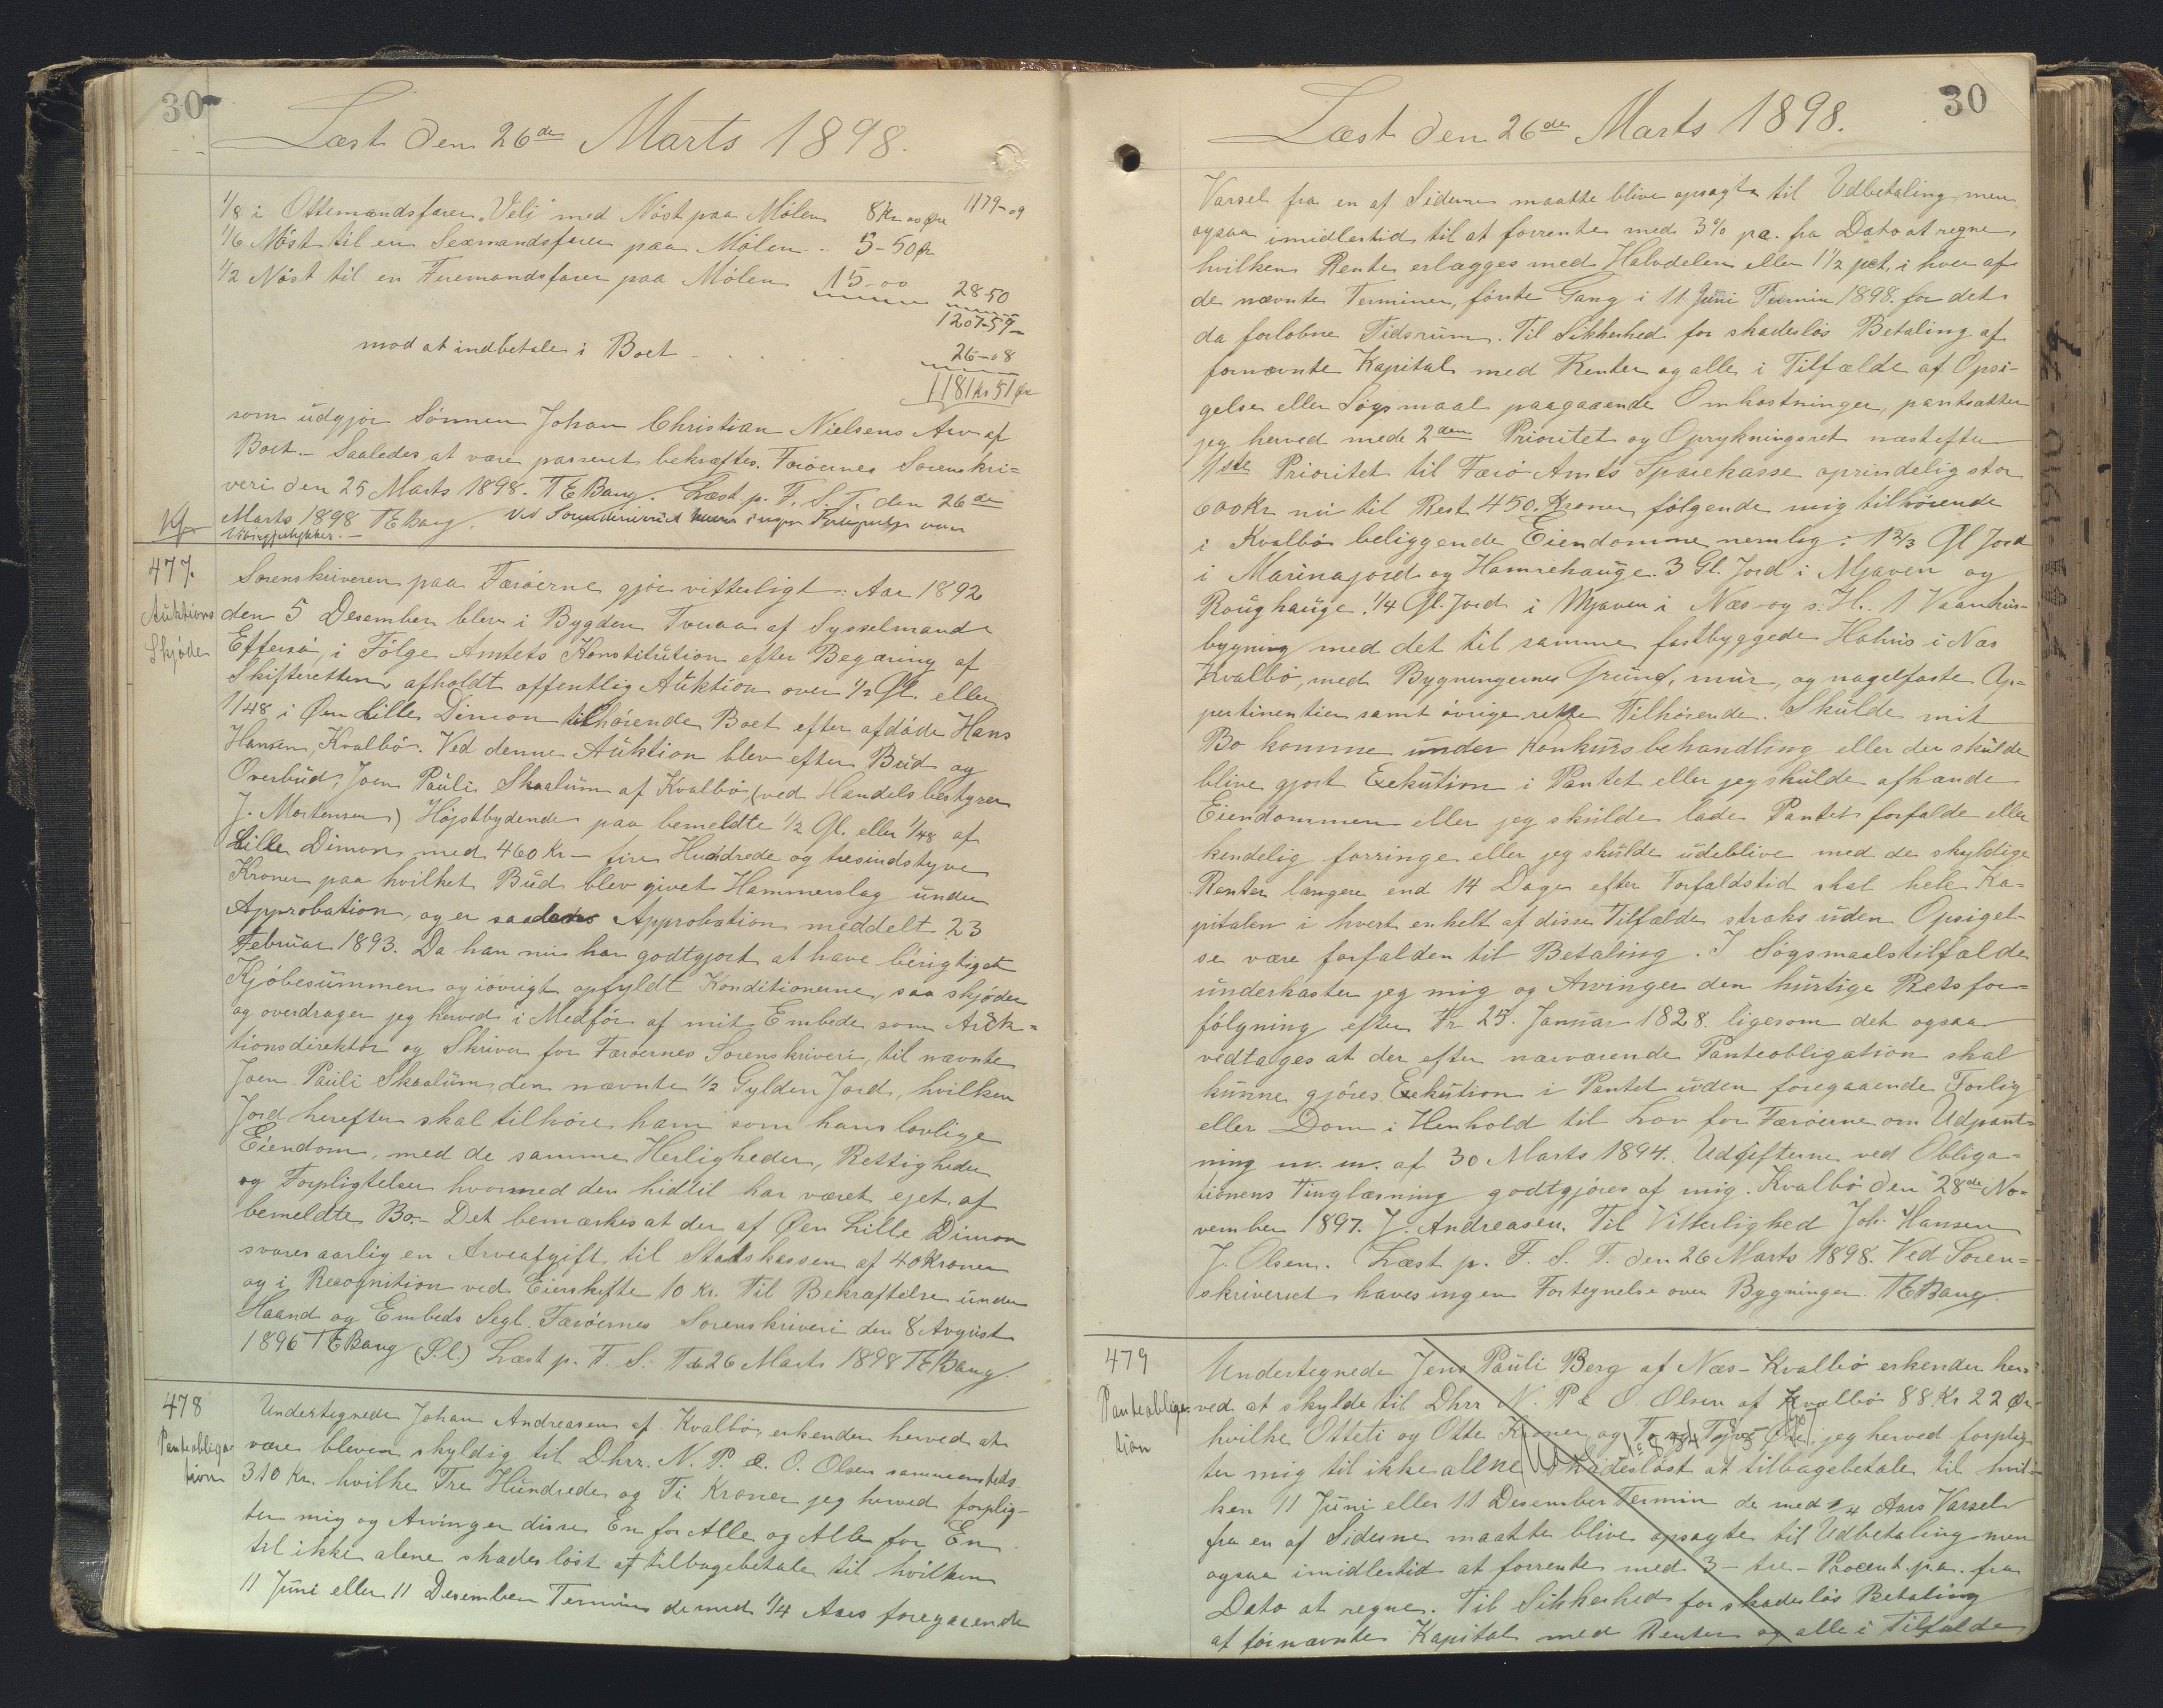 30
Læst den 26de Marts 1898.
1/8 i Ottemandsfarer "Veli" med Nöst paa Mölen 8 Kr 00 Öre 1179-09
1/6 Nöst til en Sexmandsfarer paa Mölen .. 5-50 Ør
1/2 Nöst til en Firemandsfarer paa Mölen 15-00 28-50
1207-59
mod at indbetale i Boet 26-08
1181 Kr 51 Ør
som udgjör Sönnen Johan Christian Nielsens Arv af
Boet. - Saaledes at være passeret bekræftes. Færöernes Sorenskri=
veri den 25 Marts 1898. TEBang. Læst p. F. S. T. den 26de
Marts 1898 TEBang. Ved Sorenskriveriet haves ingen over
477.
Auktions
Skjöde
Sorenskriveren paa Færöerne gjör vitterligt: Aar 1892
den 5 Desember blev i Bygden Tveraa af Sysselmand
Effersö, i Fölge Amtets Konstitution efter Begæring af
Skifteretten, afholdt offentlig Auktion over 1/2 Gl. eller
1/48 i Øen Lille Dimon tilhörende Boet efter afdöde Hans
Hansen, Kvalbö. Ved denne Auktion blev efter Bud og
Overbud, Joen Pauli Skaalum af Kvalbö (ved Handelsbestyrer
J. Mortensen) Höjstbydende paa bemeldte 1/2 Gl. eller 1/48 af
Lille Dimon med 460 Kr - fire Hundrede og tresindstyve
Kroner paa hvilket Bud blev givet Hammerslag under
Approbation, og er saadan Approbation meddelt 23
Februar 1893. Da han nu har godtgjort at have berigtiget
Kjöbesummen og iövrigt opfyldt Konditionerne, saa skjöder
og overdrager jeg herved i Medför af mit Embede som Auk=
tionsdirektör og Skriver for Færöernes Sorenskriveri, til nævnte
Joen Pauli Skaalum, den nævnte 1/2 Gylden Jord, hvilken
Jord herefter skal tilhöre ham som hans lovlige
Eiendom, med de samme Herligheder, Rettigheder
og Forpligtelser hvormed den hidtil har været ejet af
bemeldte Bo. - Det bemærkes at der af Øen Lille Dimon
svares aarlig en Arveafgift til Statskassen af 40 Kroner
og i Recognition ved Eierskifte 10 Kr. Til Bekræftelse under
Haand og Embeds Segl. Færöernes Sorenskriveri den 8 August
1896 TEBang (S.l.) Læst p. F. S. T. d. 26 Marts 1898 TEBang.
478
Panteobliga=
tion
Undertegnede Johan Andreasen af Kvalbö, erkender herved at
være bleven skyldig til Dhrr. N. P. & O. Olsen sammensteds
310 Kr. hvilke Tre Hundrede og Ti Kroner jeg herved forplig-
ter mig og Arvinger disse En for Alle og Alle for En
til ikke alene skadeslöst at tilbagebetale til hvilken
11 Juni eller 11 Desember Termin de med 1/4 Aars foregaaende
30
Læst den 26de Marts 1898.
Varsel fra en af Siderne maatte blive opsagte til Udbetaling, men
ogsaa imidlertid til at forrente med 3% p.a. fra Dato at regne,
hvilken Rente erlægges med Halvdelen eller 1 1/2 pct. i hver af
de nævnte Terminer, förste Gang i 11 Juni Termin 1898. for det
da forlöbne Tidsrum. Til Sikkerhed for skadeslös Betaling af
fornævnte Kapital med Renter og alle i Tilfælde af Opsi-
gelse eller Sögsmaal paagaaende Omkostninger, pantsætter
jeg herved mede 2den Prioritet og Oprykningsret næstefter
1ste Prioritet til Færö Amts Sparekasse oprindelig stor
600 Kr nu til Rest 450 Kroner, fölgende mig tilhörende
i Kvalbö beliggende Eiendomme nemlig: 1 2/3 Gl Jord
i Marinajord og Hamrehauge. 3 Gl. Jord i Mjaven og
Roughauge. 1/4 Gl. Jord i Mjaven i Næs og s. H.. 1 Vaanhus-
bygning med det til samme fastbyggede Hohus i Næs
Kvalbö, med Bygningernes Grund, mur, og nagelfaste Ap=
pertinentier samt övrige rette Tilhörende. Skulde mit
Bo komme under Konkursbehandling eller der skulde
blive gjort Exekution i Pantet eller jeg skulde afhænde
Eiendommen eller jeg skulde lade Pantet forfalde eller
kendelig forringe eller jeg skulde udeblive med de skyldige
Renter længere end 14 Dage efter Forfaldstid skal hele Ka=
pitalen i hvert enkelt af disse Tilfælde straks uden Opsigel-
se være forfalden til Betaling. I Sögsmaalstilfælde
underkaster jeg mig og Arvinger den hurtige Retsfor=
fölgning efter Fr 25. Januar 1828. ligesom det ogsaa
vedtages at der efter nærværende Panteobligation skal
kunne gjöres Exekution i Pantet uden foregaaende Forlig
eller Dom i Henhold til Lov for Færöerne om Udpant=
ning m. m. af 30 Marts 1894. Udgifterne ved Obliga=
tionens Tinglæsning godtgjöres af mig. Kvalbö den 28de No=
vember 1897. J. Andreasen. Til Vitterlighed Joh. Hansen
J. Olsen. Læst p. F. S. T. den 26 Marts 1898. Ved Soren=
skriveriet haves ingen Fortegnelse over Bygninger. TEBang.
479
Panteobliga=
tion
Undertegnede Jens Pauli Berg af Næs-Kvalbö erkender her=
ved at skylde til Dhrr N. P & O. Olsen af Kvalbö 88 Kr 22 Ør
hvilke Otteti og Otte Kroner og To og Tyve Øre jeg herved forplig
ter mig til ikke allene skadeslöst at tilbagebetale til hvil=
ken 11 Juni eller 11 Desember Termin de med 1/4 Aars Varsel
fra en af Siderne maatte blive opsagte til Udbetaling men
ogsaa imidlertid at forrente med 3 - tre - Procent p.a. fra
Dato at regne. Til Sikkerhed for skadeslös Betaling
af förnævnte Kapital med Renter og alle i Tilfælde